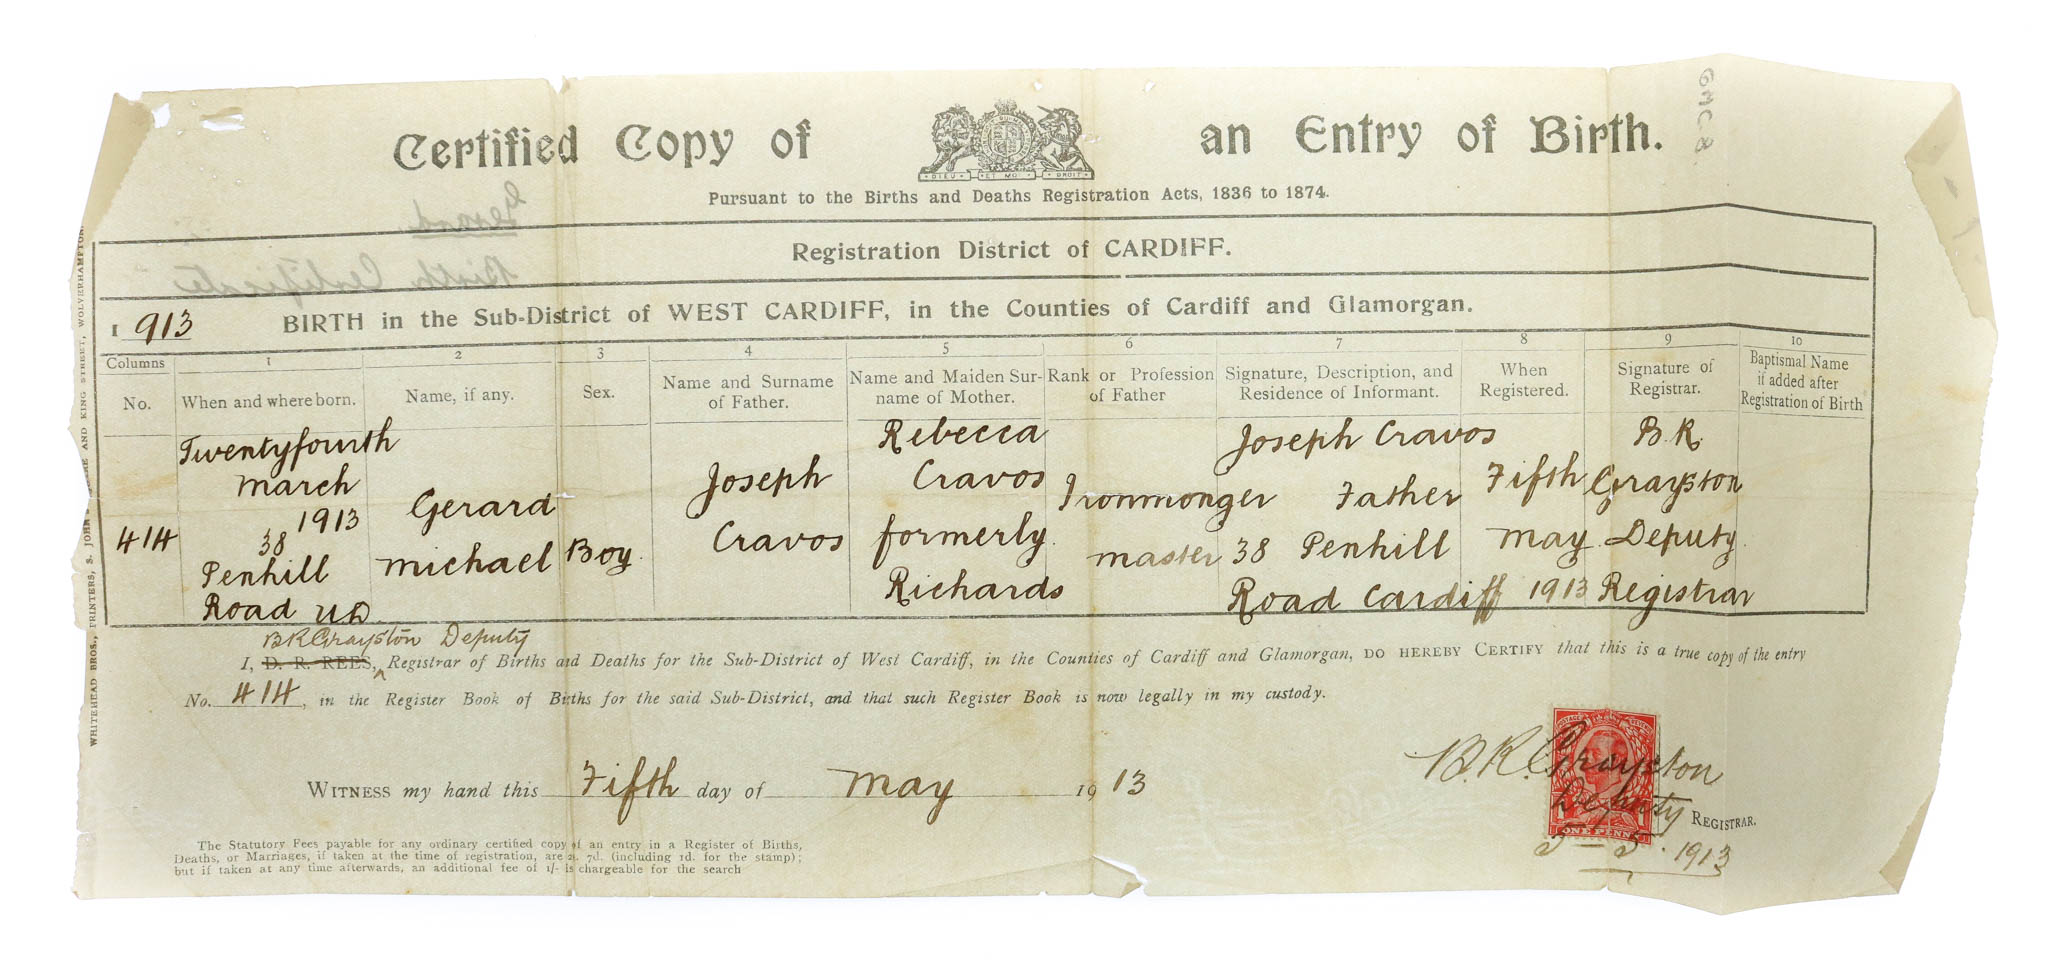 Certified Copy of an Entry of Birth.
DIEU ET MON DROIT
Pursuant to the Births and Deaths Registration Acts, 1836 to 1874.
Gerard
Birth Certificate
Registration District of CARDIFF.
1913 BIRTH in the Sub-District of WEST CARDIFF, in the Counties of Cardiff and Glamorgan.
Columns 1 2 3 4 5 6 7 8 9 10
No.
When and where born.
Name, if any.
Sex.
Name and Surname
of Father.
Name and Maiden Sur-
name of Mother.
Rank or Profession
of Father
Signature, Description, and
Residence of Informant.
When
Registered.
Signature of
Registrar.
Baptismal Name
if added after
Registration of Birth
414
Twentyfourth
March
1913
38
Penhill
Road UD
Gerard
Michael
Boy
Joseph
Cravos
Rebecca
Cravos
formerly
Richards
Ironmonger
master
Joseph Cravos
Father
38 Penhill
Road Cardiff
Fifth
May
1913
B.R.
Grayston
Deputy
Registrar
BR Grayston Deputy
I, D. R. REES, Registrar of Births and Deaths for the Sub-District of West Cardiff, in the Counties of Cardiff and Glamorgan, DO HEREBY CERTIFY that this is a true copy of the entry
No. 414, in the Register Book of Births for the said Sub-District, and that such Register Book is now legally in my custody.
WITNESS my hand this Fifth day of May 1913
B.R. Grayston
Deputy REGISTRAR.
5-5.1913
POSTAGE REVENUE
ONE PENNY
The Statutory Fees payable for any ordinary certified copy of an entry in a Register of Births,
Deaths, or Marriages, if taken at the time of registration, are 2s. 7d. (including 1d. for the stamp);
but if taken at any time afterwards, an additional fee of 1/- is chargeable for the search
WHITEHEAD BROS., PRINTERS, S. JOHN'S AND KING STREET, WOLVERHAMPTON